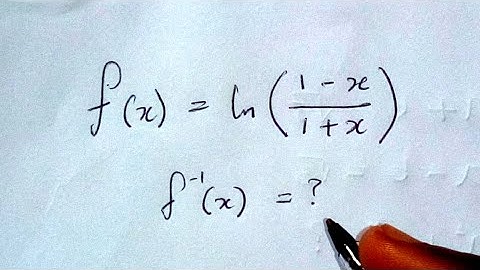 f(x) = ln((1-x)/(1+x))
f⁻¹(x) = ?